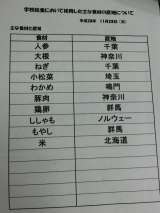 学校給食において使用した主な食材の産地について
平成23年 11月28日(月)
主な食材の産地
食材 産地
人参 千葉
大根 神奈川
ねぎ 千葉
小松菜 埼玉
わかめ 鳴門
豚肉 神奈川
鶏卵 群馬
ししゃも ノルウェー
もやし 群馬
米 北海道